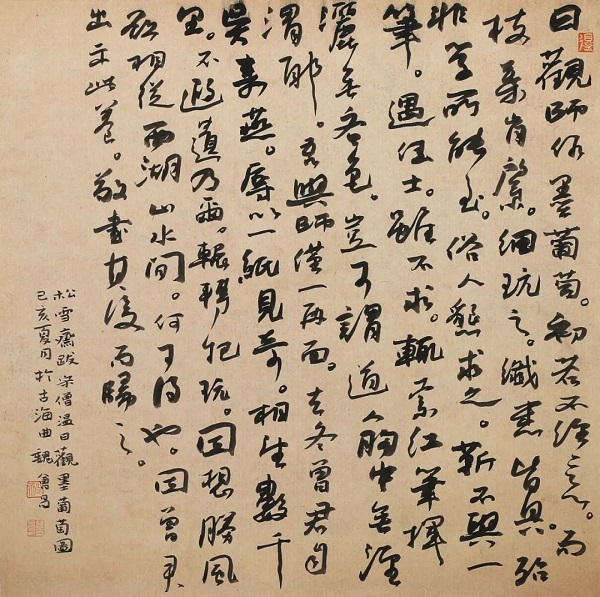 日觀師作墨葡萄。初若不經意。而
枝葉肖。細玩之。纖悉皆具。殆
非學所能至。俗人懇求之。靳不與一
筆。遇佳士。雖不求。輒索紅筆揮
灑無吝色。豈可謂道人胸中無涇
渭耶。吾與師僅一再面。去冬曾君自
吳來燕。辱以一紙見寄。相望數千
里。不遐遺乃爾。輾轉把玩。因想勝風
欲相從西湖山水間。何可得也。因曾君
出示此卷。敬書其後而歸之。
松雪齋跋宋僧溫日觀墨葡萄圖
己亥夏月於古海曲 魏曾